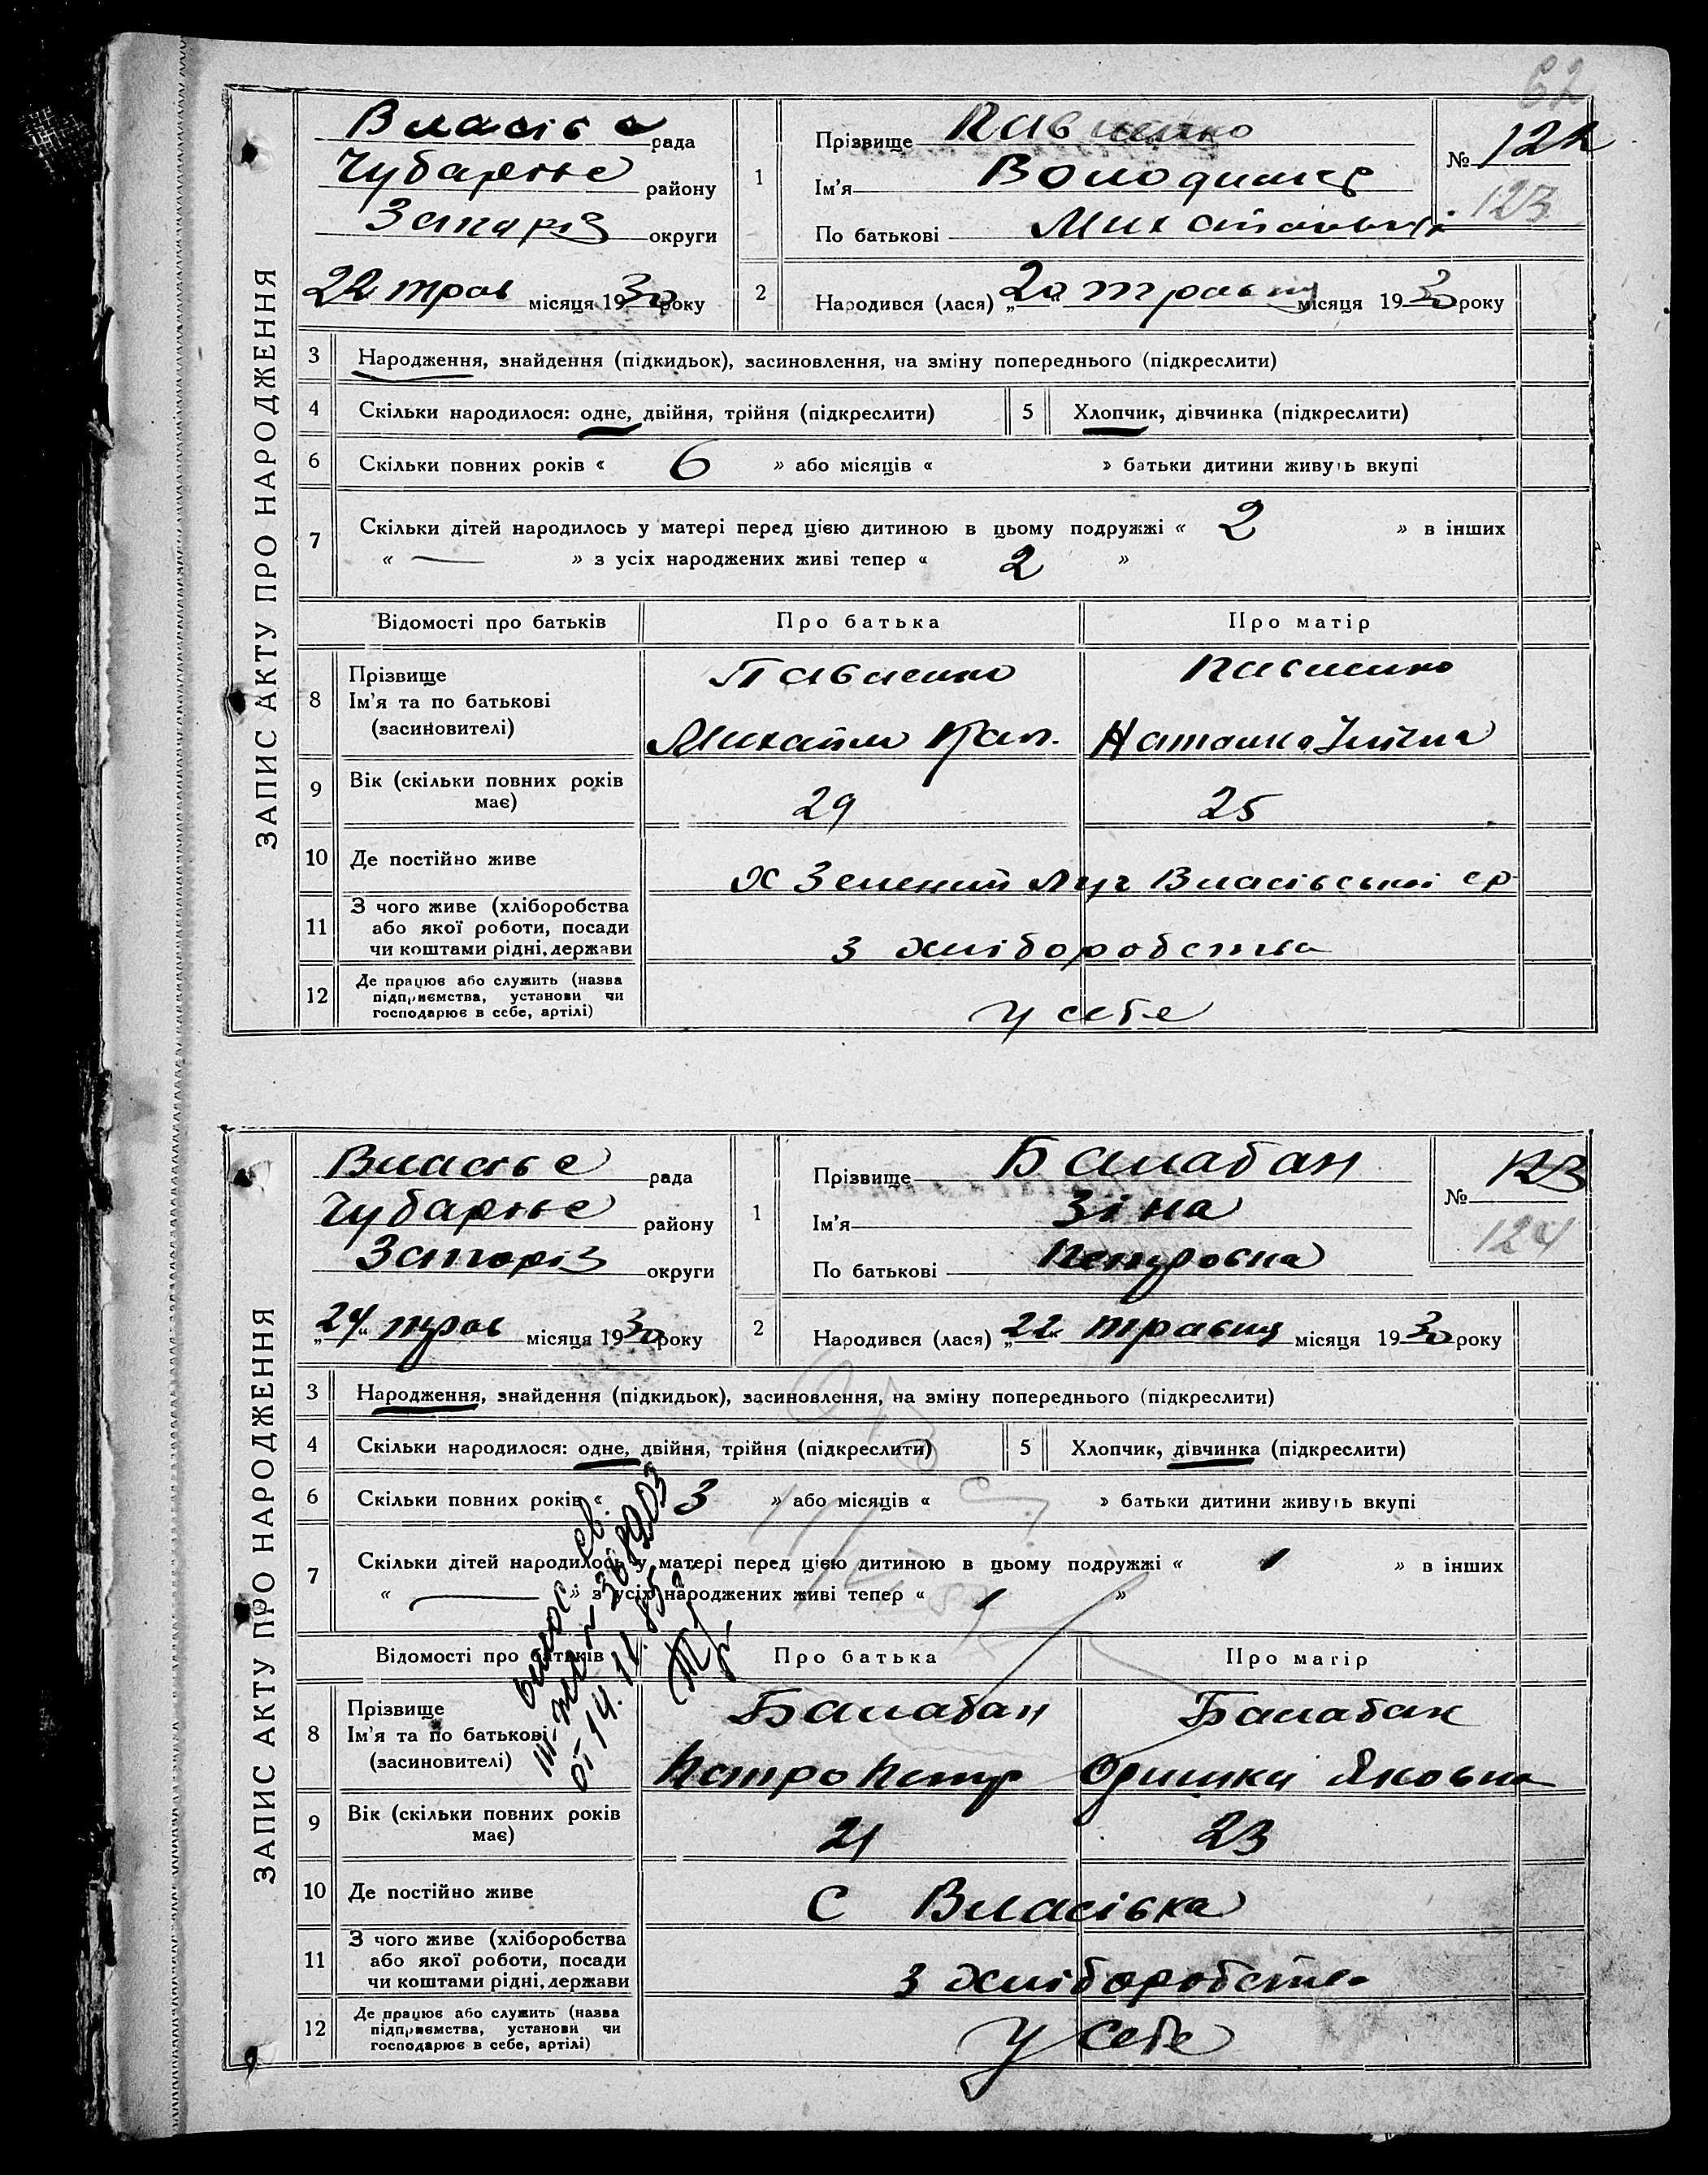 62
ЗАПИС АКТУ ПРО НАРОДЖЕННЯ
Власівс рада
Чубарівс району
Запоріз округи
„22“ трав місяця 1930 року
1 Прізвище Павленко
Ім'я Володимир
По батькові Михайлович
№ 122
123
2 Народився (лася) „20“ травня місяця 1930 року
3 Народження, знайдення (підкидьок), засиновлення, на зміну попереднього (підкреслити)
4 Скільки народилося: одне, двійня, трійня (підкреслити)
5 Хлопчик, дівчинка (підкреслити)
6 Скільки повних років « 6 » або місяців « » батьки дитини живуть вкупі
7 Скільки дітей народилось у матері перед цією дитиною в цьому подружжі « 2 » в інших
« — » з усіх народжених живі тепер « 2 »
Відомості про батьків Про батька Про матір
8 Прізвище
Ім'я та по батькові
(засиновителі)
Павленко
Михайло
Павленко
Наталка Ілічна
9 Вік (скільки повних років
має)
29 25
10 Де постійно живе х Зелений Луг Власівської ср
11 З чого живе (хліборобства
або якої роботи, посади
чи коштами рідні, держави
з хліборобства
12 Де працює або служить (назва
підприємства, установи чи
господарює в себе, артілі)
у себе
ЗАПИС АКТУ ПРО НАРОДЖЕННЯ
Власівс рада
Чубарівс району
Запоріз округи
„24“ трав місяця 1930 року
1 Прізвище Балабан
Ім'я Зіна
По батькові Петровна
№ 123
124
2 Народився (лася) „22“ травня місяця 1930 року
3 Народження, знайдення (підкидьок), засиновлення, на зміну попереднього (підкреслити)
4 Скільки народилося: одне, двійня, трійня (підкреслити)
5 Хлопчик, дівчинка (підкреслити)
6 Скільки повних років « 3 » або місяців « » батьки дитини живуть вкупі
7 Скільки дітей народилось у матері перед цією дитиною в цьому подружжі « 1 » в інших
« — » з усіх народжених живі тепер « 1 »
от 14.11.85
Відомості про батьків Про батька Про матір
8 Прізвище
Ім'я та по батькові
(засиновителі)
Балабан
Петро Петр
Балабан
Оришка Яковна
9 Вік (скільки повних років
має)
21 23
10 Де постійно живе С Власівка
11 З чого живе (хліборобства
або якої роботи, посади
чи коштами рідні, держави
з хліборобства
12 Де працює або служить (назва
підприємства, установи чи
господарює в себе, артілі)
у себе